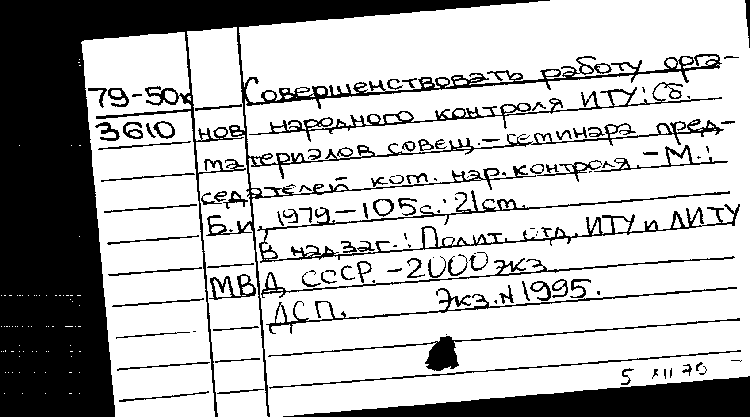 79-50к Совершенствовать работу орга-
3610 нов народного контроля ИТУ: Сб.
материалов совещ.-семинара пред-
седателей ком. нар. контроля. - М.:
Б.и., 1979. - 105с.; 21см.
В надзаг.: Полит. отд. ИТУ и ЛИТУ
МВД СССР. - 2000 экз.
ДСП. Экз. N 1995.
5 XII 79